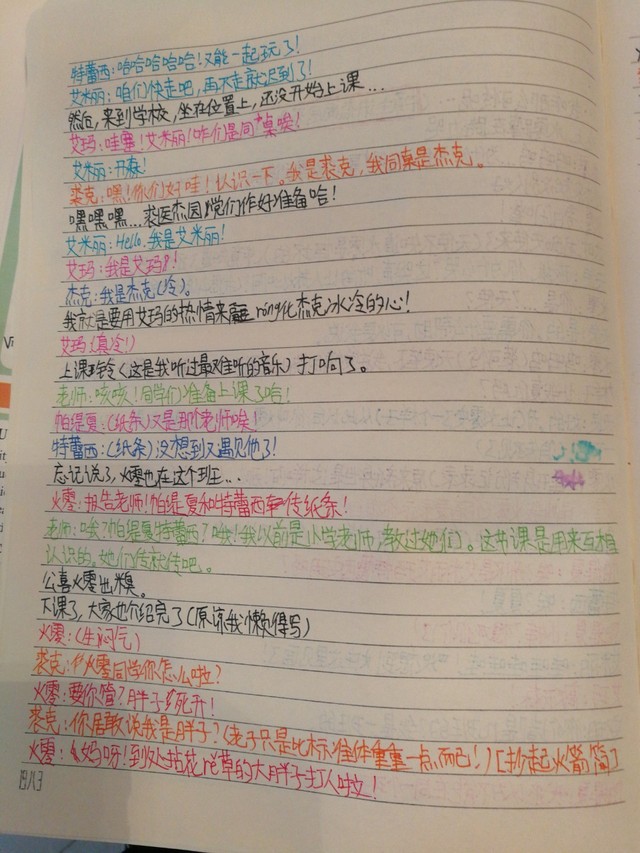 特蕾西:哈哈哈哈哈!又能一起玩了!
艾米丽:咱们快走吧,再不走就迟到了!
然后,来到学校,坐在位置上,还没开始上课...
艾玛:哇塞!艾米丽!咋们是同桌唉!
艾米丽:开森!
裘克:嘿!你们好哇!认识一下。我是裘克,我同桌是杰克。
嘿嘿嘿...裘医杰园党们作好准备哈!
艾米丽:Hello.我是艾米丽!
艾玛:我是艾玛!
杰克:我是杰克(冷)。
我就是要用艾玛的热情来róng化杰克冰冷的心!
艾玛(真冷!)
上课铃(这是我听过最难听的音乐)打响了。
老师:咳咳!同学们准备上课了哈!
帕缇夏:(纸条)又是那个老师唉!
特蕾西:(纸条)没想到又遇见他了!
忘记说了,火零也在这个班...
火零:报告老师!帕缇夏和特蕾西在传纸条!
老师:哦?帕缇夏特蕾西?哦!我以前是小学老师,教过她们。这节课是用来互相
认识的,她们传就传吧。
公喜火零出糗。
下课了,大家也介绍完了(原谅我懒得写)
火零:(生闷气)
裘克:火零同学你怎么啦?
火零:要你管?胖子死开!
裘克:你居敢说我是胖子?(老子只是比标准体重重一点而已!)[扔起火箭筒]
火零:妈呀!到处拈花rě草的大胖子打人啦!